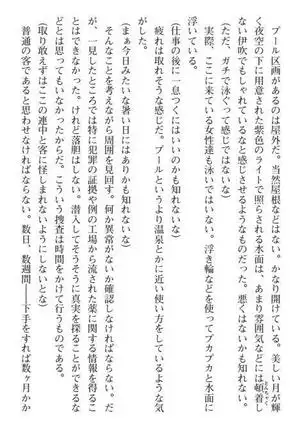 プール区画があるのは屋外だ。当然屋根などはない。かなり開けている。美しい月が輝
く夜空の下に用意された紫色のライトで照らされる水面は、あまり雰囲気などには頓着し
ない伊吹でもしゃれているなと感じさせるようなものだった。悪くはないかも知れない。
(ただ、ガチで泳ぐって感じではないな)
実際、ここに来ている女性達も泳いではいない。浮き輪などを使ってプカプカと水面に
浮いている。
(仕事の後に一息つくにはいいのかも知れないな)
疲れは取れそうな感じだ。プールというより温泉とかに近い使い方をしているような気
がした。
(まぁ今日みたいな暑い日にはありかも知れないな)
そんなことを考えながら周囲を見回す。何か異常がないか確認しなければならない。だ
が、一見したところでは特に犯罪の証拠や例の工場から流された薬に関する情報を得るこ
とはできなかった。けれど落胆はしない。潜入してそうそうに真実を探ることができるな
どとは思ってもいなかったからだ。こういう捜査は時間をかけて行うものである。
(取り敢えずはここの連中と客に怪しまれないようにしないとな)
普通の客であると思わせなければならない。数日、数週間――下手をすれば数ヶ月かか